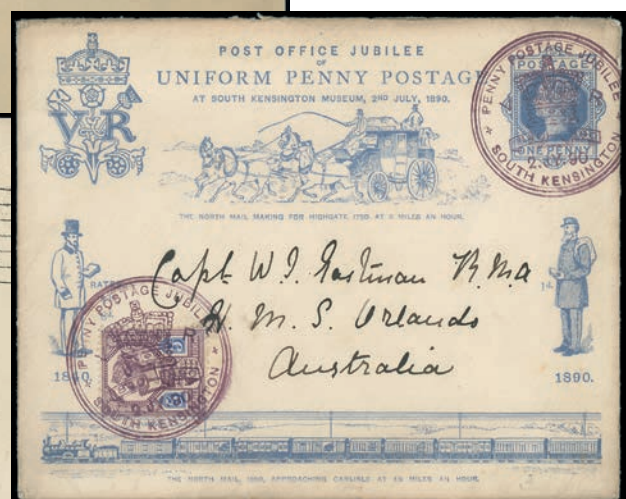 POST OFFICE JUBILEE
OF
UNIFORM PENNY POSTAGE
AT SOUTH KENSINGTON MUSEUM, 2ND JULY, 1890.
V R
PENNY POSTAGE JUBILEE
POSTAGE
ONE PENNY
SOUTH KENSINGTON
THE NORTH MAIL MAKING FOR HIGHGATE 1790. AT 8 MILES AN HOUR.
Capt W. J. Eastman R.M.A
H. M. S. Orlando
Australia
RATE
1d.
PENNY POSTAGE JUBILEE
SOUTH KENSINGTON
1840
1890.
THE NORTH MAIL, 1890, APPROACHING CARLISLE AT 48 MILES AN HOUR.